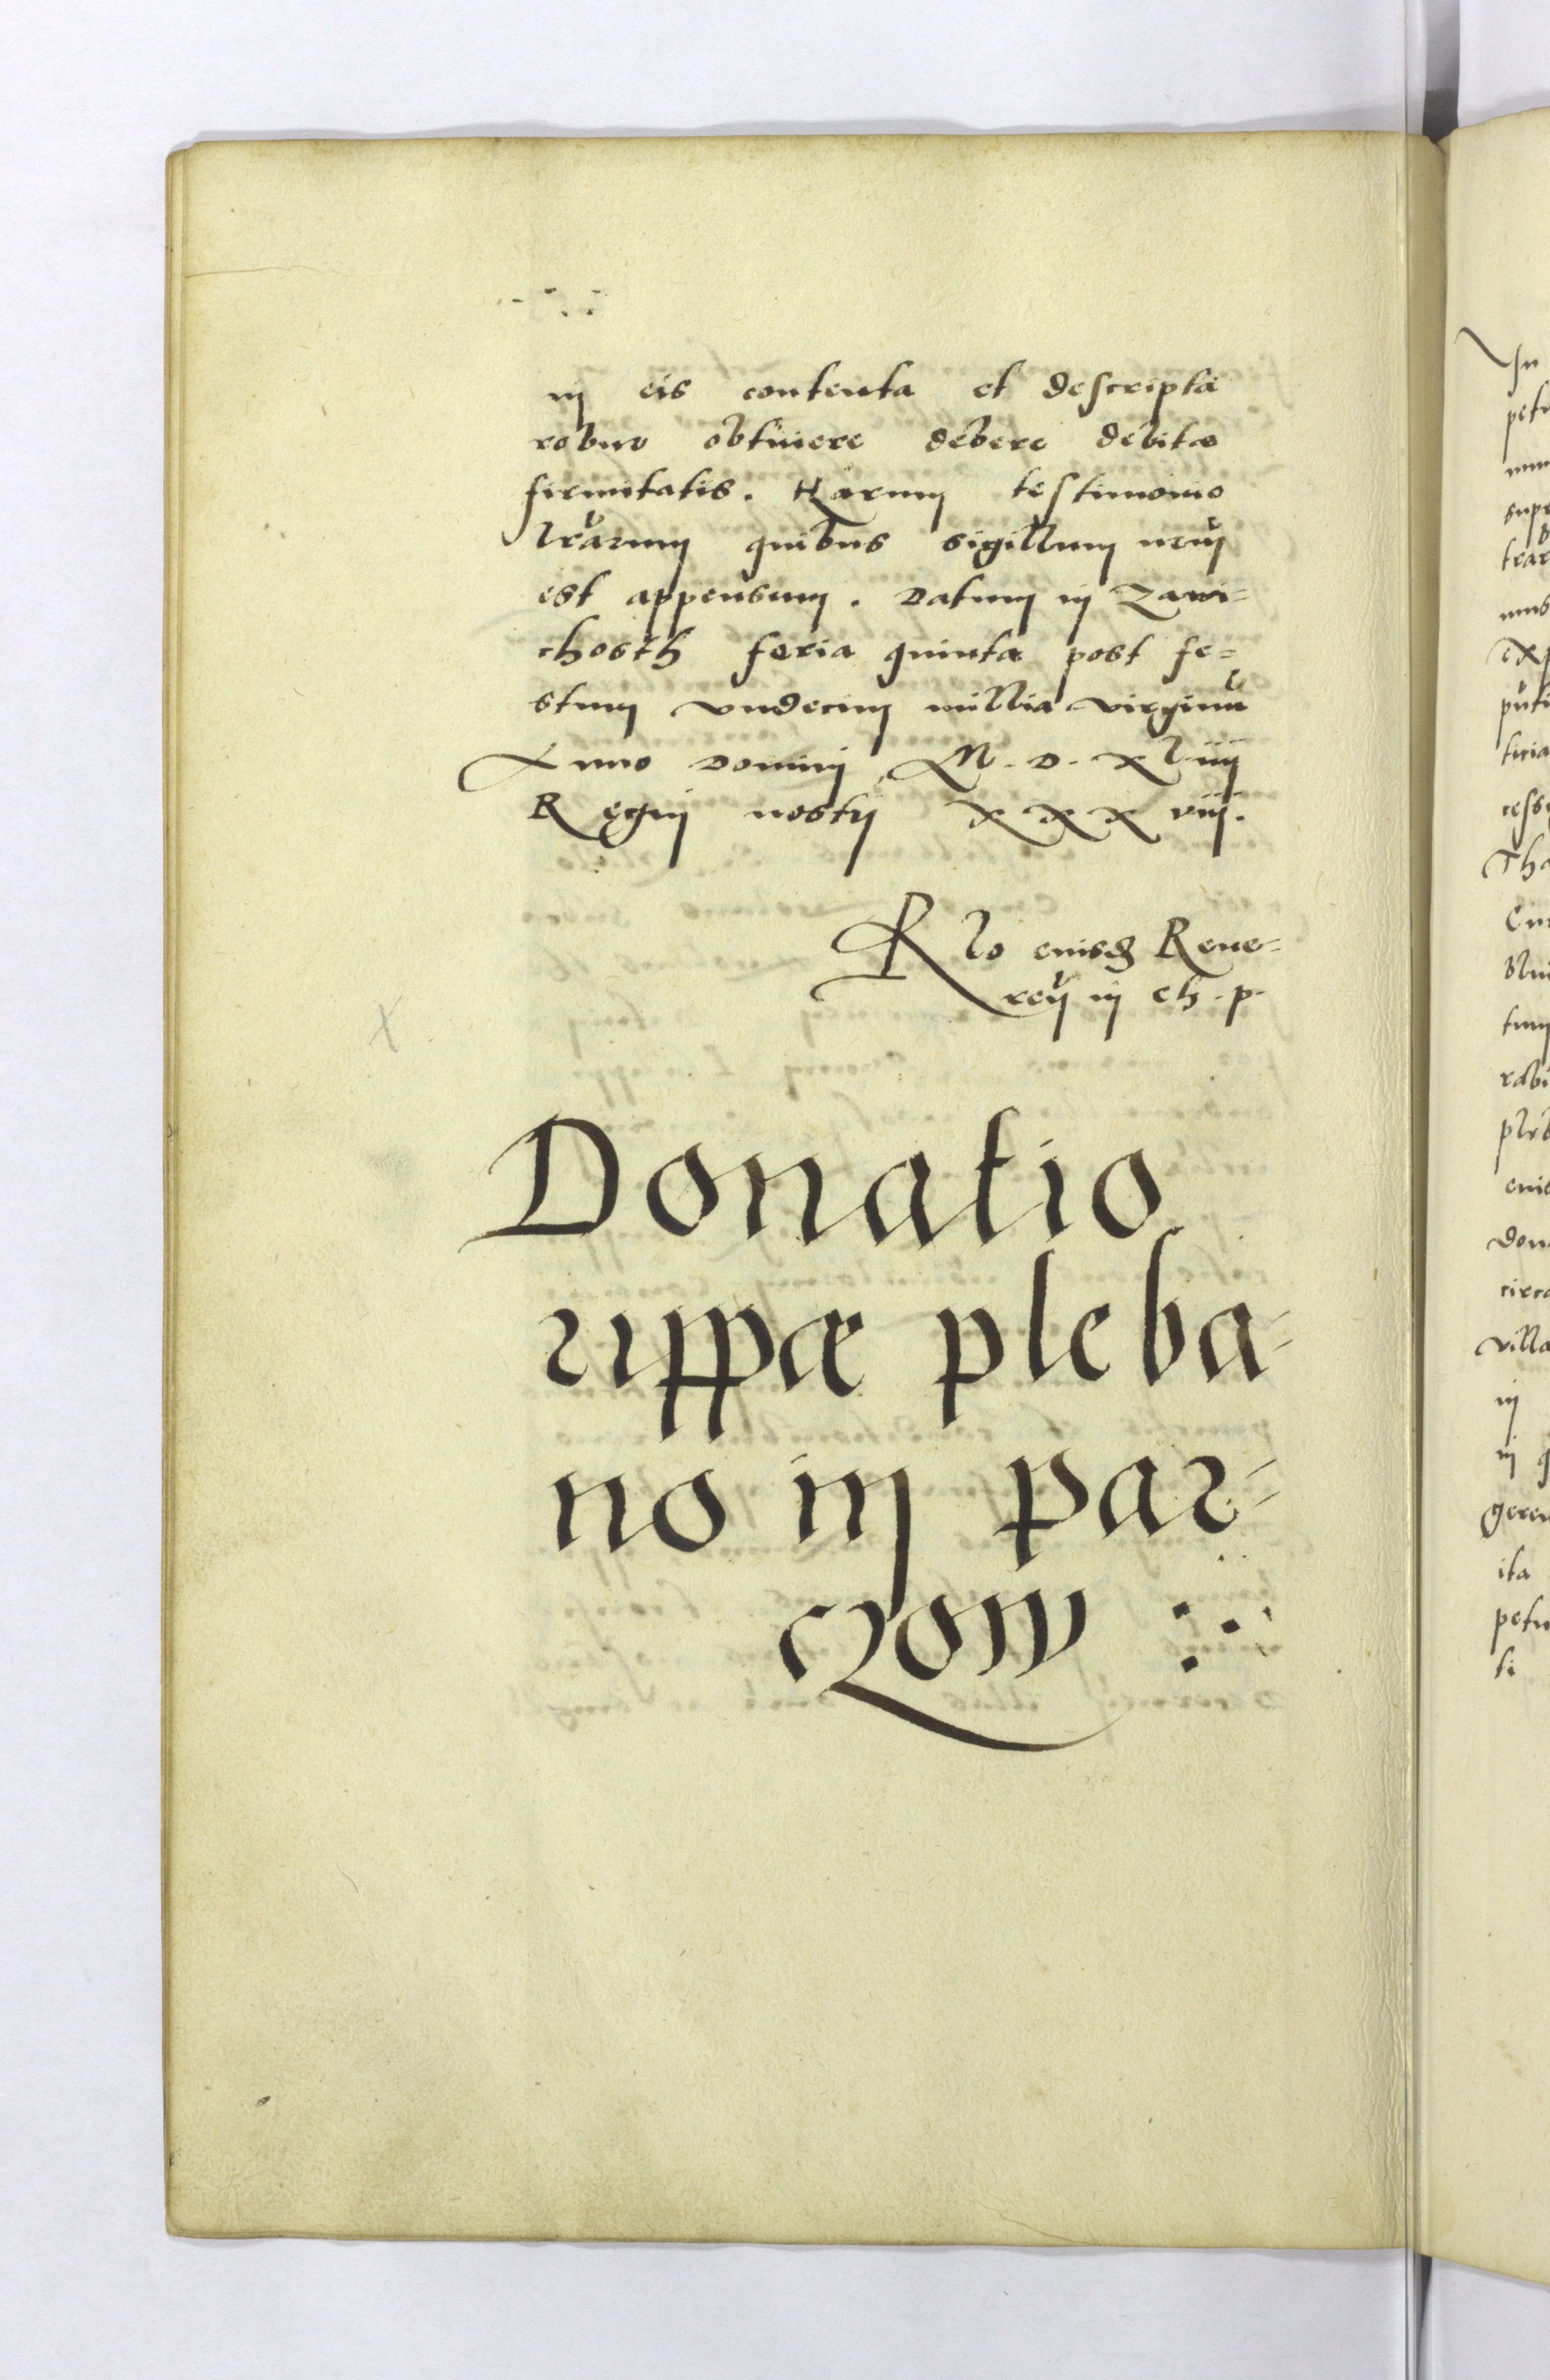 in eis contenta et descripta
robur obtinere debere debitæ
firmitatis. Harum testimonio
lrarum quibus sigillum nrum
est appensum. Datum in Zawi=
chosth feria quinta post fe=
stum vndecim millia virginu
Anno Domini M. D. Xl iiij
Regni nostri XXX viij.
Rlo eiusd Reue=
ren in Ch. p.
Donatio
rippæ pleba=
no in par=
czow